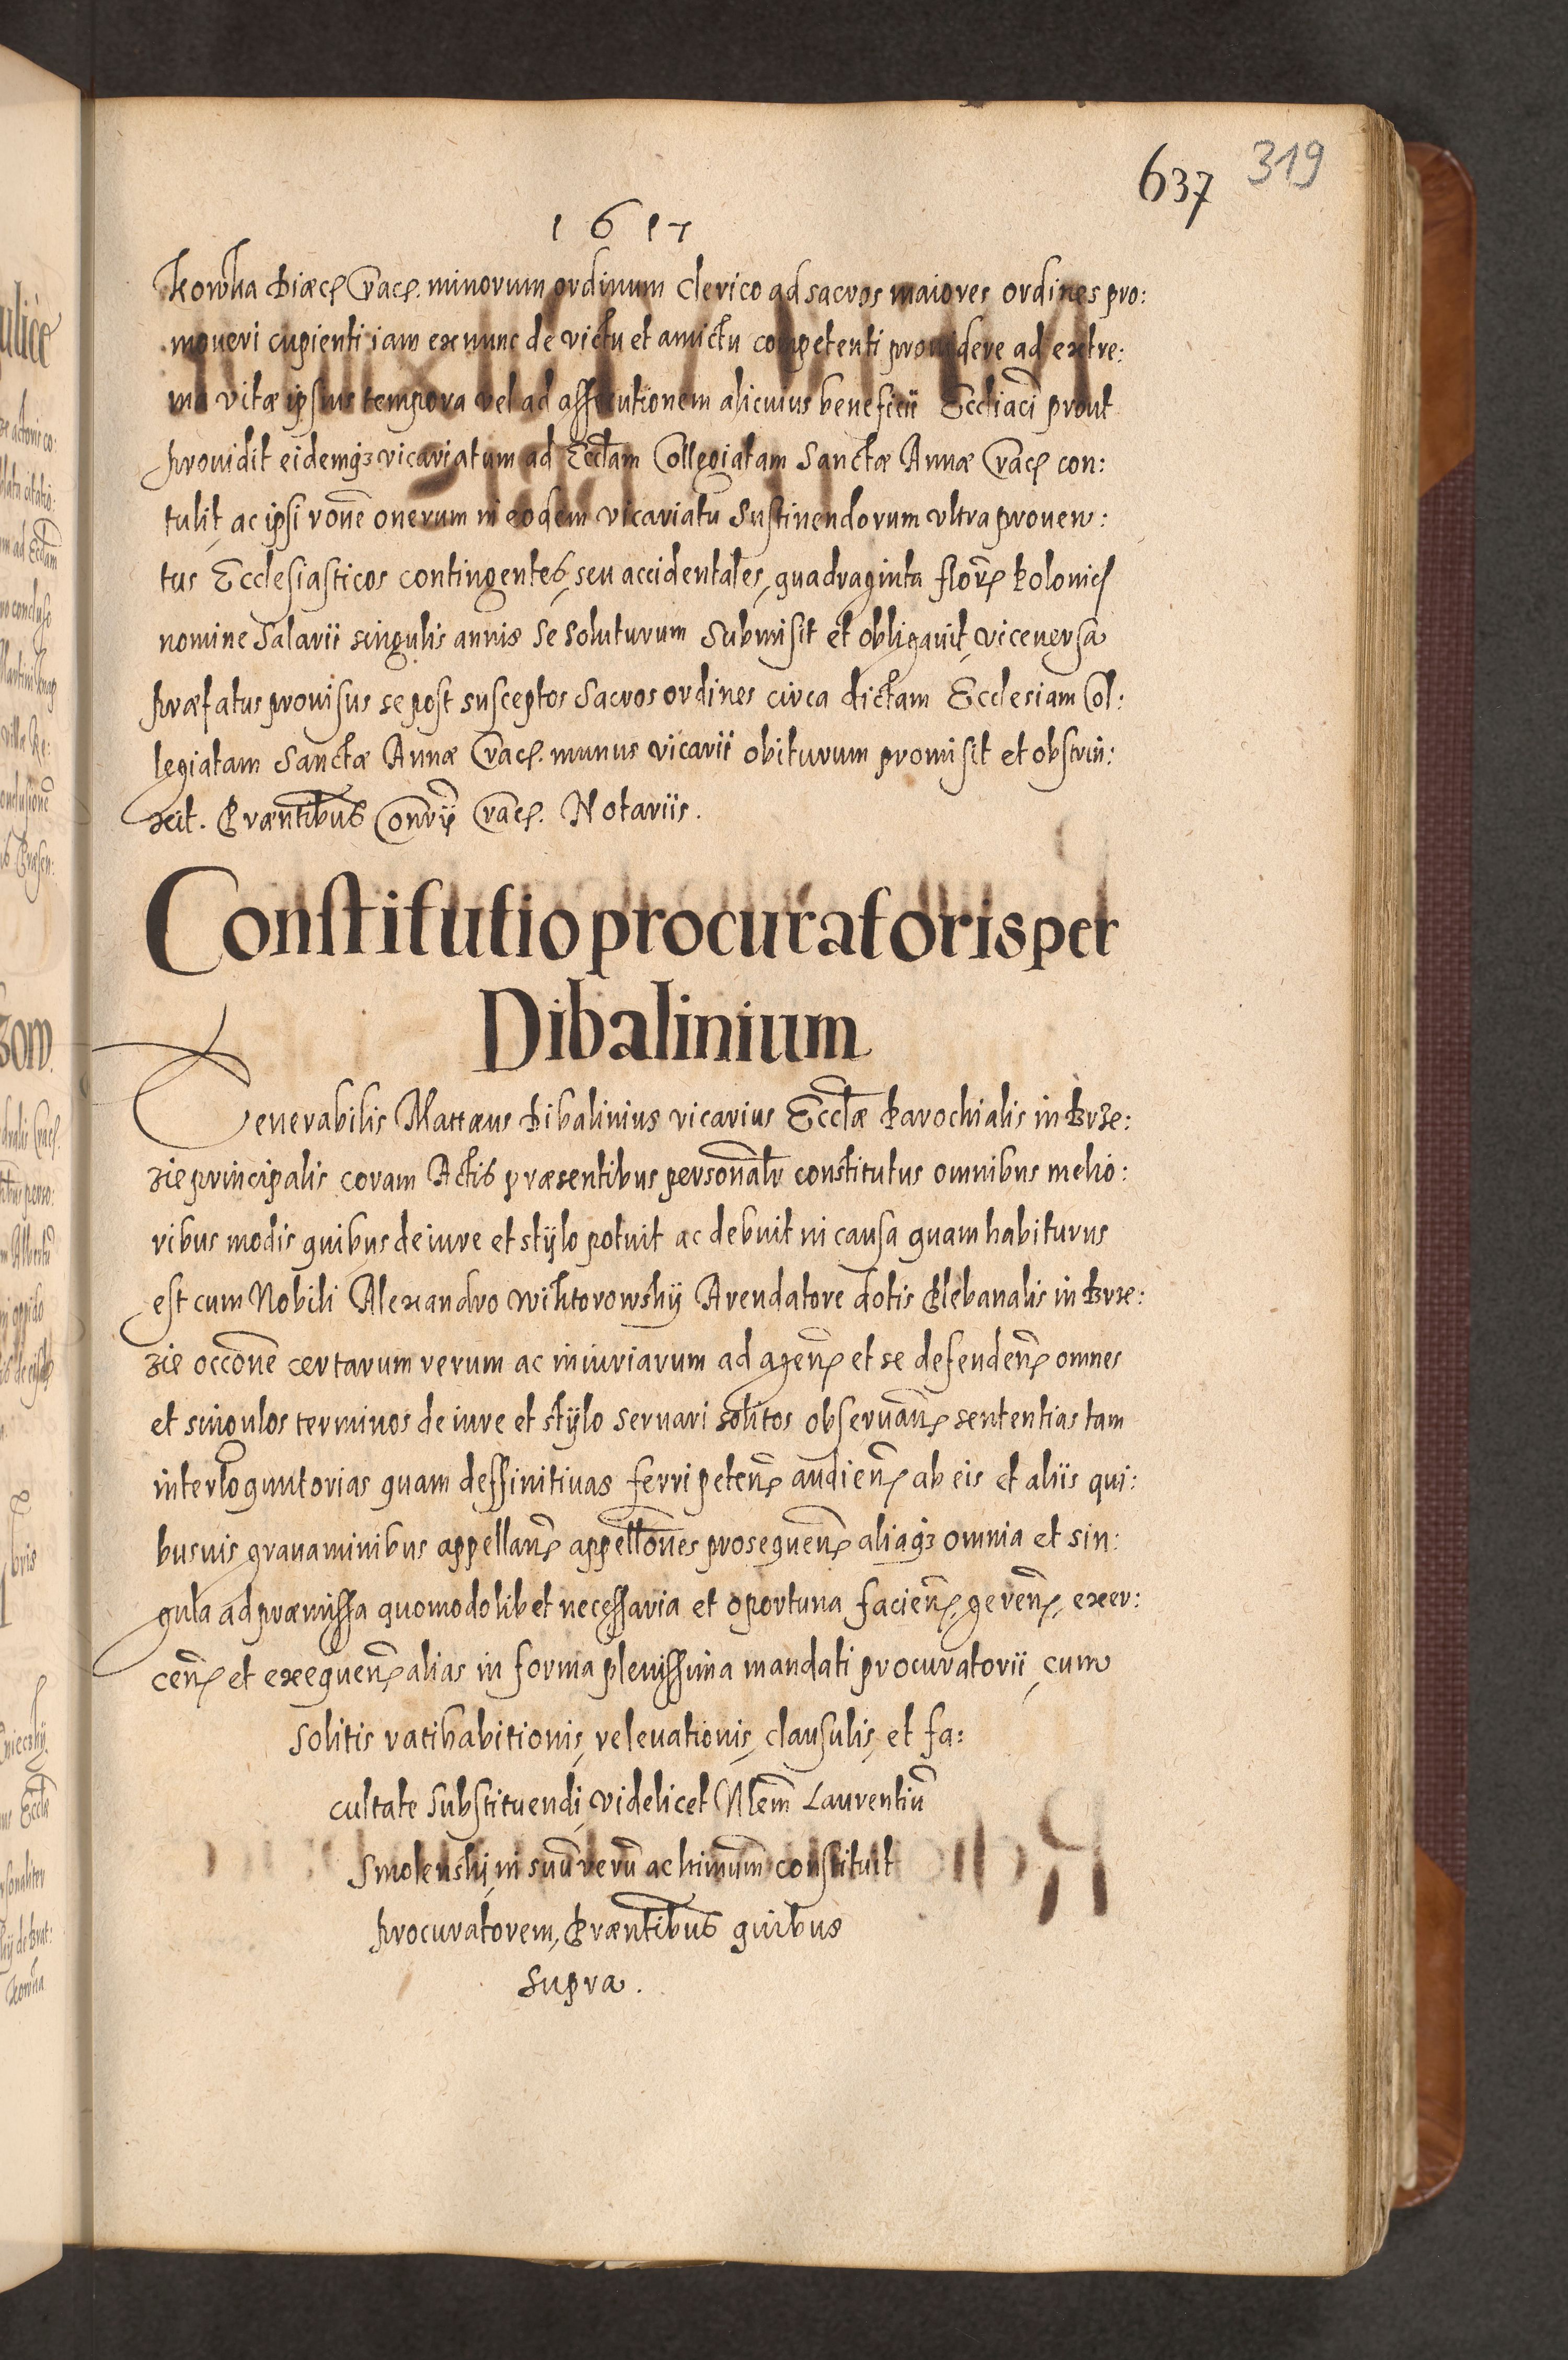 637 319
1617
kowka Diæc. Crac. minorum ordinum Clerico ad sacros maiores ordines pro:
moueri cupienti iam ex nunc de victu et amictu competenti prouidere ad extre:
ma vitæ ipsius tempora vel ad assecutionem alicuius beneficii Eccliaci prout
prouidit eidemq3 vicariatum ad Ecclam Collegiatam Sanctæ Annæ Crac con:
tulit, ac ipsi rone onerum in eodem vicariatu Sustinendorum vltra prouen:
tus Ecclesiasticos contingentes, seu accidentales, quadraginta flor. Polonic
nomine Salarii singulis annis se soluturum submisit et obligauit, viceuersa
præfatus prouisus se post susceptos Sacros ordines circa dictam Ecclesiam Col:
legiatam Sanctæ Annæ Crac. munus vicarii obiturum promisit et obstrin:
xit. Præntibus Conrÿ Crac. Notariis.
Constitutio procuratoris per
Dibalinium
Venerabilis Mattæus Dibalinius vicarius Ecclæ Parochialis in Brze:
zie principalis coram Actis præsentibus personalr constitutus omnibus melio:
ribus modis quibus de iure et stÿlo potuit ac debuit in causa quam habiturus
est cum Nobili Alexandro Wiktorowskÿ Arendatore dotis Plebanalis in Brze:
zie occone certarum rerum ac iniuriarum ad agen. et se defenden. omnes
et singulos terminos de iure et stÿlo seruari solitos obseruan. sententias tam
interloquutorias quam deffinitiuas ferri peten. audien. ab eis et aliis qui:
busuis grauaminibus appellan. appellones prosequen. aliaq3 omnia et sin:
gula ad præmissa quomodolibet necessaria et oportuna facien. geren. exer:
cen. et exequen. alias in forma plenissima mandati procuratorii, cum
solitis ratihabitionis, releuationis, clausulis, et fa:
cultate substituendi, videlicet Nlem Laurentiu
Smolenskÿ, in suu veru ac ltimum constituit
procuratorem, Præntibus quibus
supra.